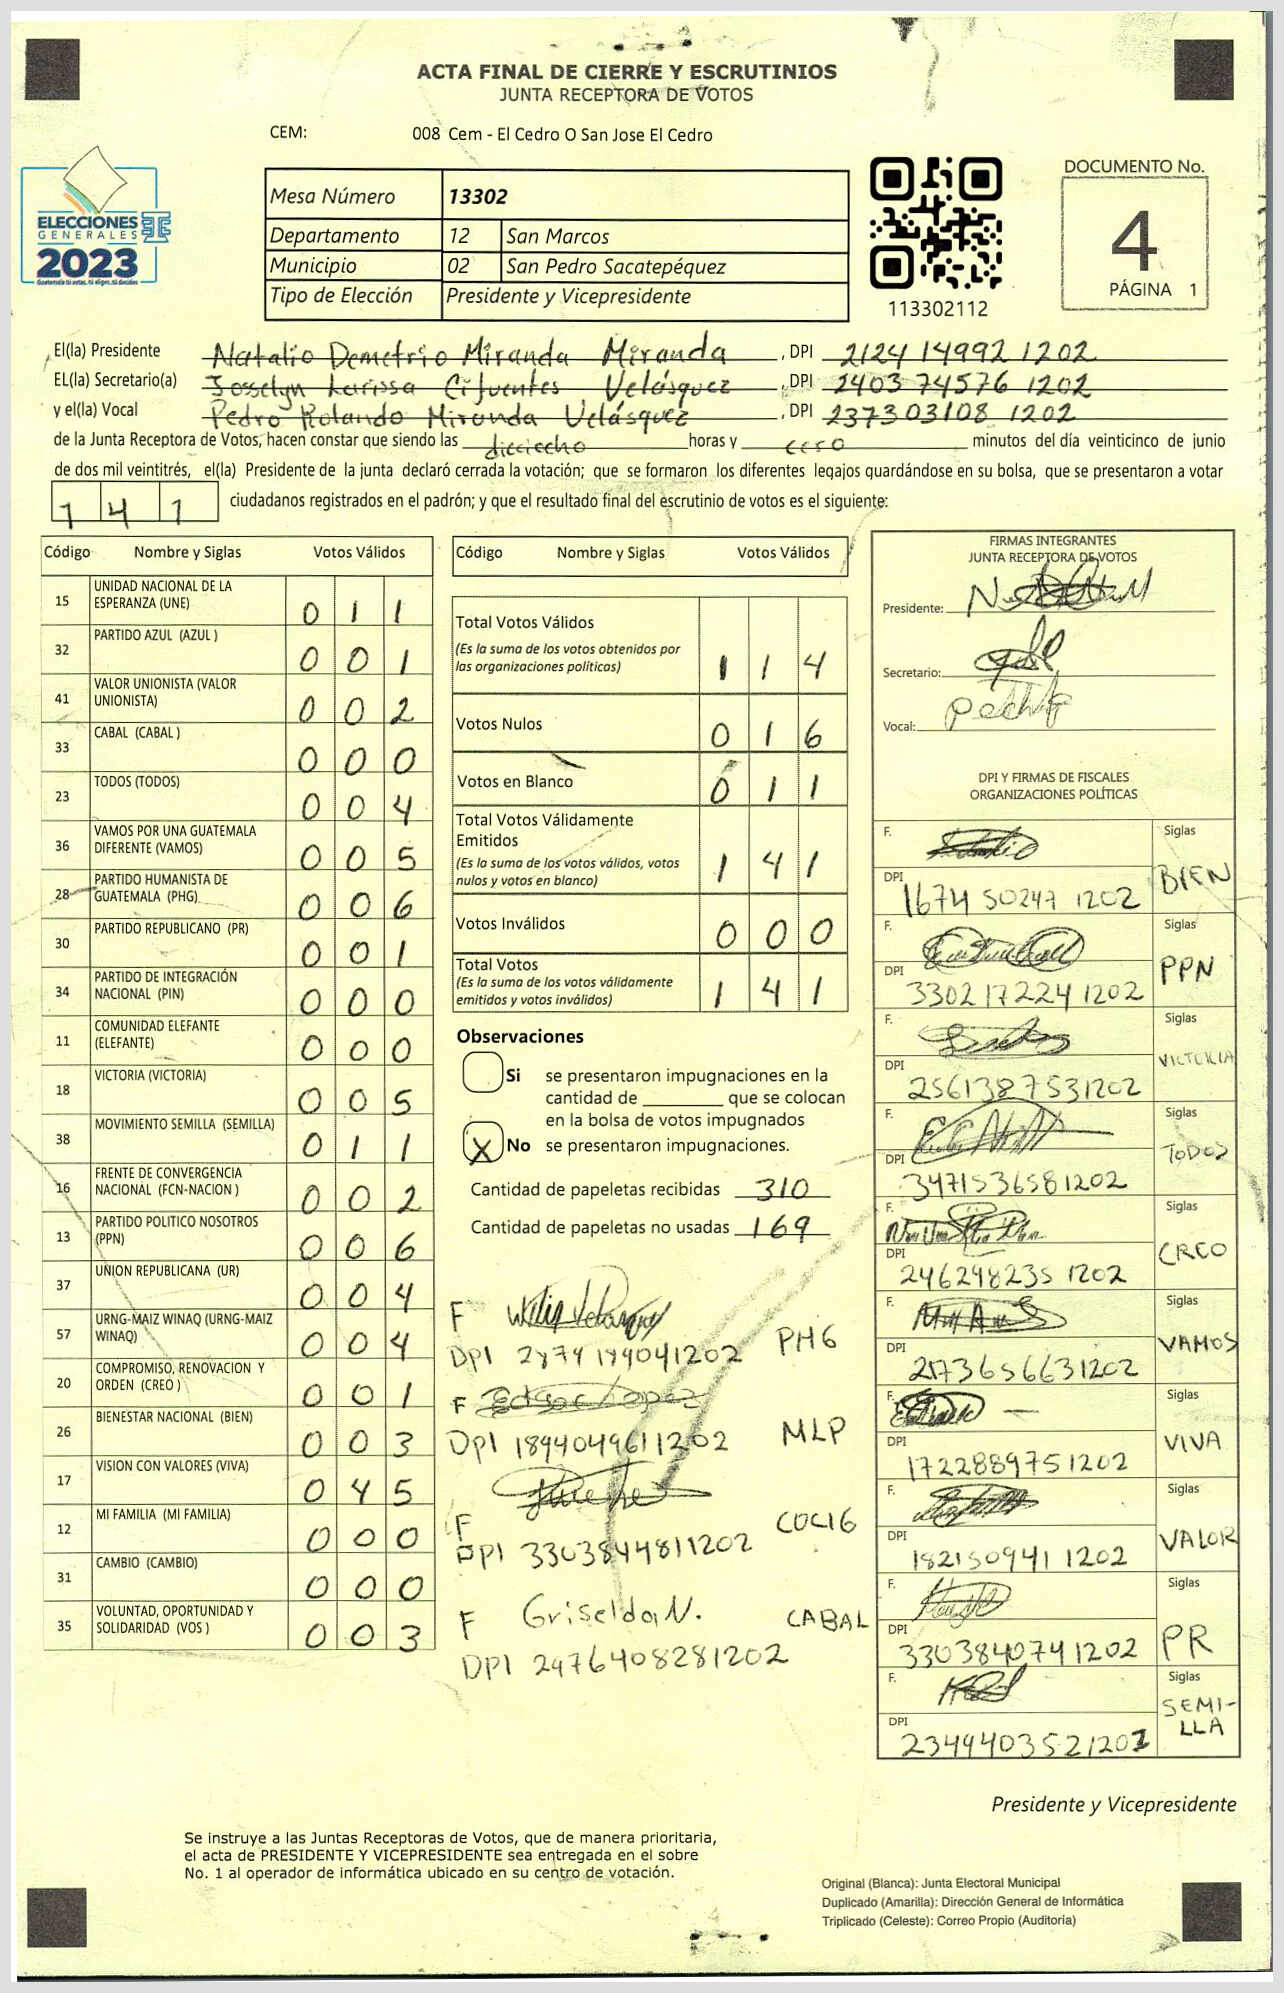 ACTA FINAL DE CIERRE Y ESCRUTINIOS
JUNTA RECEPTORA DE VOTOS
CEM: 008 Cem - El Cedro O San Jose El Cedro
ELECCIONES
GENERALES
2023
Guatemala tú votas, tú eliges, tú decides
Mesa Número 13302
Departamento 12 San Marcos
Municipio 02 San Pedro Sacatepéquez
Tipo de Elección Presidente y Vicepresidente
113302112
DOCUMENTO No.
4
PÁGINA 1
El(la) Presidente Natalio Demetrio Miranda Miranda , DPI 2124 14992 1202
EL(la) Secretario(a) Josselyn Larissa Cifuentes Velásquez , DPI 2403 74576 1202
y el(la) Vocal Pedro Rolando Miranda Velásquez , DPI 2373 03108 1202
de la Junta Receptora de Votos, hacen constar que siendo las dieciocho horas y cero minutos del día veinticinco de junio
de dos mil veintitrés, el(la) Presidente de la junta declaró cerrada la votación; que se formaron los diferentes legajos guardándose en su bolsa, que se presentaron a votar
141 ciudadanos registrados en el padrón; y que el resultado final del escrutinio de votos es el siguiente:
Código Nombre y Siglas Votos Válidos
15 UNIDAD NACIONAL DE LA ESPERANZA (UNE) 0 1 1
32 PARTIDO AZUL (AZUL ) 0 0 1
41 VALOR UNIONISTA (VALOR UNIONISTA) 0 0 2
33 CABAL (CABAL ) 0 0 0
23 TODOS (TODOS) 0 0 4
36 VAMOS POR UNA GUATEMALA DIFERENTE (VAMOS) 0 0 5
28 PARTIDO HUMANISTA DE GUATEMALA (PHG) 0 0 6
30 PARTIDO REPUBLICANO (PR) 0 0 1
34 PARTIDO DE INTEGRACIÓN NACIONAL (PIN) 0 0 0
11 COMUNIDAD ELEFANTE (ELEFANTE) 0 0 0
18 VICTORIA (VICTORIA) 0 0 5
38 MOVIMIENTO SEMILLA (SEMILLA) 0 1 1
16 FRENTE DE CONVERGENCIA NACIONAL (FCN-NACION ) 0 0 2
13 PARTIDO POLITICO NOSOTROS (PPN) 0 0 6
37 UNION REPUBLICANA (UR) 0 0 4
57 URNG-MAIZ WINAQ (URNG-MAIZ WINAQ) 0 0 4
20 COMPROMISO, RENOVACION Y ORDEN (CREO ) 0 0 1
26 BIENESTAR NACIONAL (BIEN) 0 0 3
17 VISION CON VALORES (VIVA) 0 4 5
12 MI FAMILIA (MI FAMILIA) 0 0 0
31 CAMBIO (CAMBIO) 0 0 0
35 VOLUNTAD, OPORTUNIDAD Y SOLIDARIDAD (VOS ) 0 0 3
Código Nombre y Siglas Votos Válidos
Total Votos Válidos 1 1 4
(Es la suma de los votos obtenidos por
las organizaciones políticas)
Votos Nulos 0 1 6
Votos en Blanco 0 1 1
Total Votos Válidamente
Emitidos 1 4 1
(Es la suma de los votos válidos, votos
nulos y votos en blanco)
Votos Inválidos 0 0 0
Total Votos 1 4 1
(Es la suma de los votos válidamente
emitidos y votos inválidos)
Observaciones
Si se presentaron impugnaciones en la
cantidad de ________ que se colocan
en la bolsa de votos impugnados
X No se presentaron impugnaciones.
Cantidad de papeletas recibidas 310
Cantidad de papeletas no usadas 169
F
DPI 2874 199041202 PHG
F Edgar Lopez
DPI 1894049611202 MLP
F
DPI 3303844811202 COCIG
F Griselda N. CABAL
DPI 2476408281202
FIRMAS INTEGRANTES
JUNTA RECEPTORA DE VOTOS
Presidente:
Secretario:
Vocal:
DPI Y FIRMAS DE FISCALES
ORGANIZACIONES POLÍTICAS
F. Siglas
DPI 1674 50247 1202 BIEN
F. Siglas
DPI 3302 17224 1202 PPN
F. Siglas
DPI 2561387531202 VICTORIA
F. Siglas
DPI 3471536581202 TODOS
F. Siglas
DPI 246248235 1202 CREO
F. Siglas
DPI 2173656631202 VAMOS
F. Siglas
DPI 1722889751202 VIVA
F. Siglas
DPI 182150941 1202 VALOR
F. Siglas
DPI 3303840741202 PR
F. Siglas
DPI 2349403521202 SEMI-
LLA
Presidente y Vicepresidente
Se instruye a las Juntas Receptoras de Votos, que de manera prioritaria,
el acta de PRESIDENTE Y VICEPRESIDENTE sea entregada en el sobre
No. 1 al operador de informática ubicado en su centro de votación.
Original (Blanca): Junta Electoral Municipal
Duplicado (Amarilla): Dirección General de Informática
Triplicado (Celeste): Correo Propio (Auditoría)